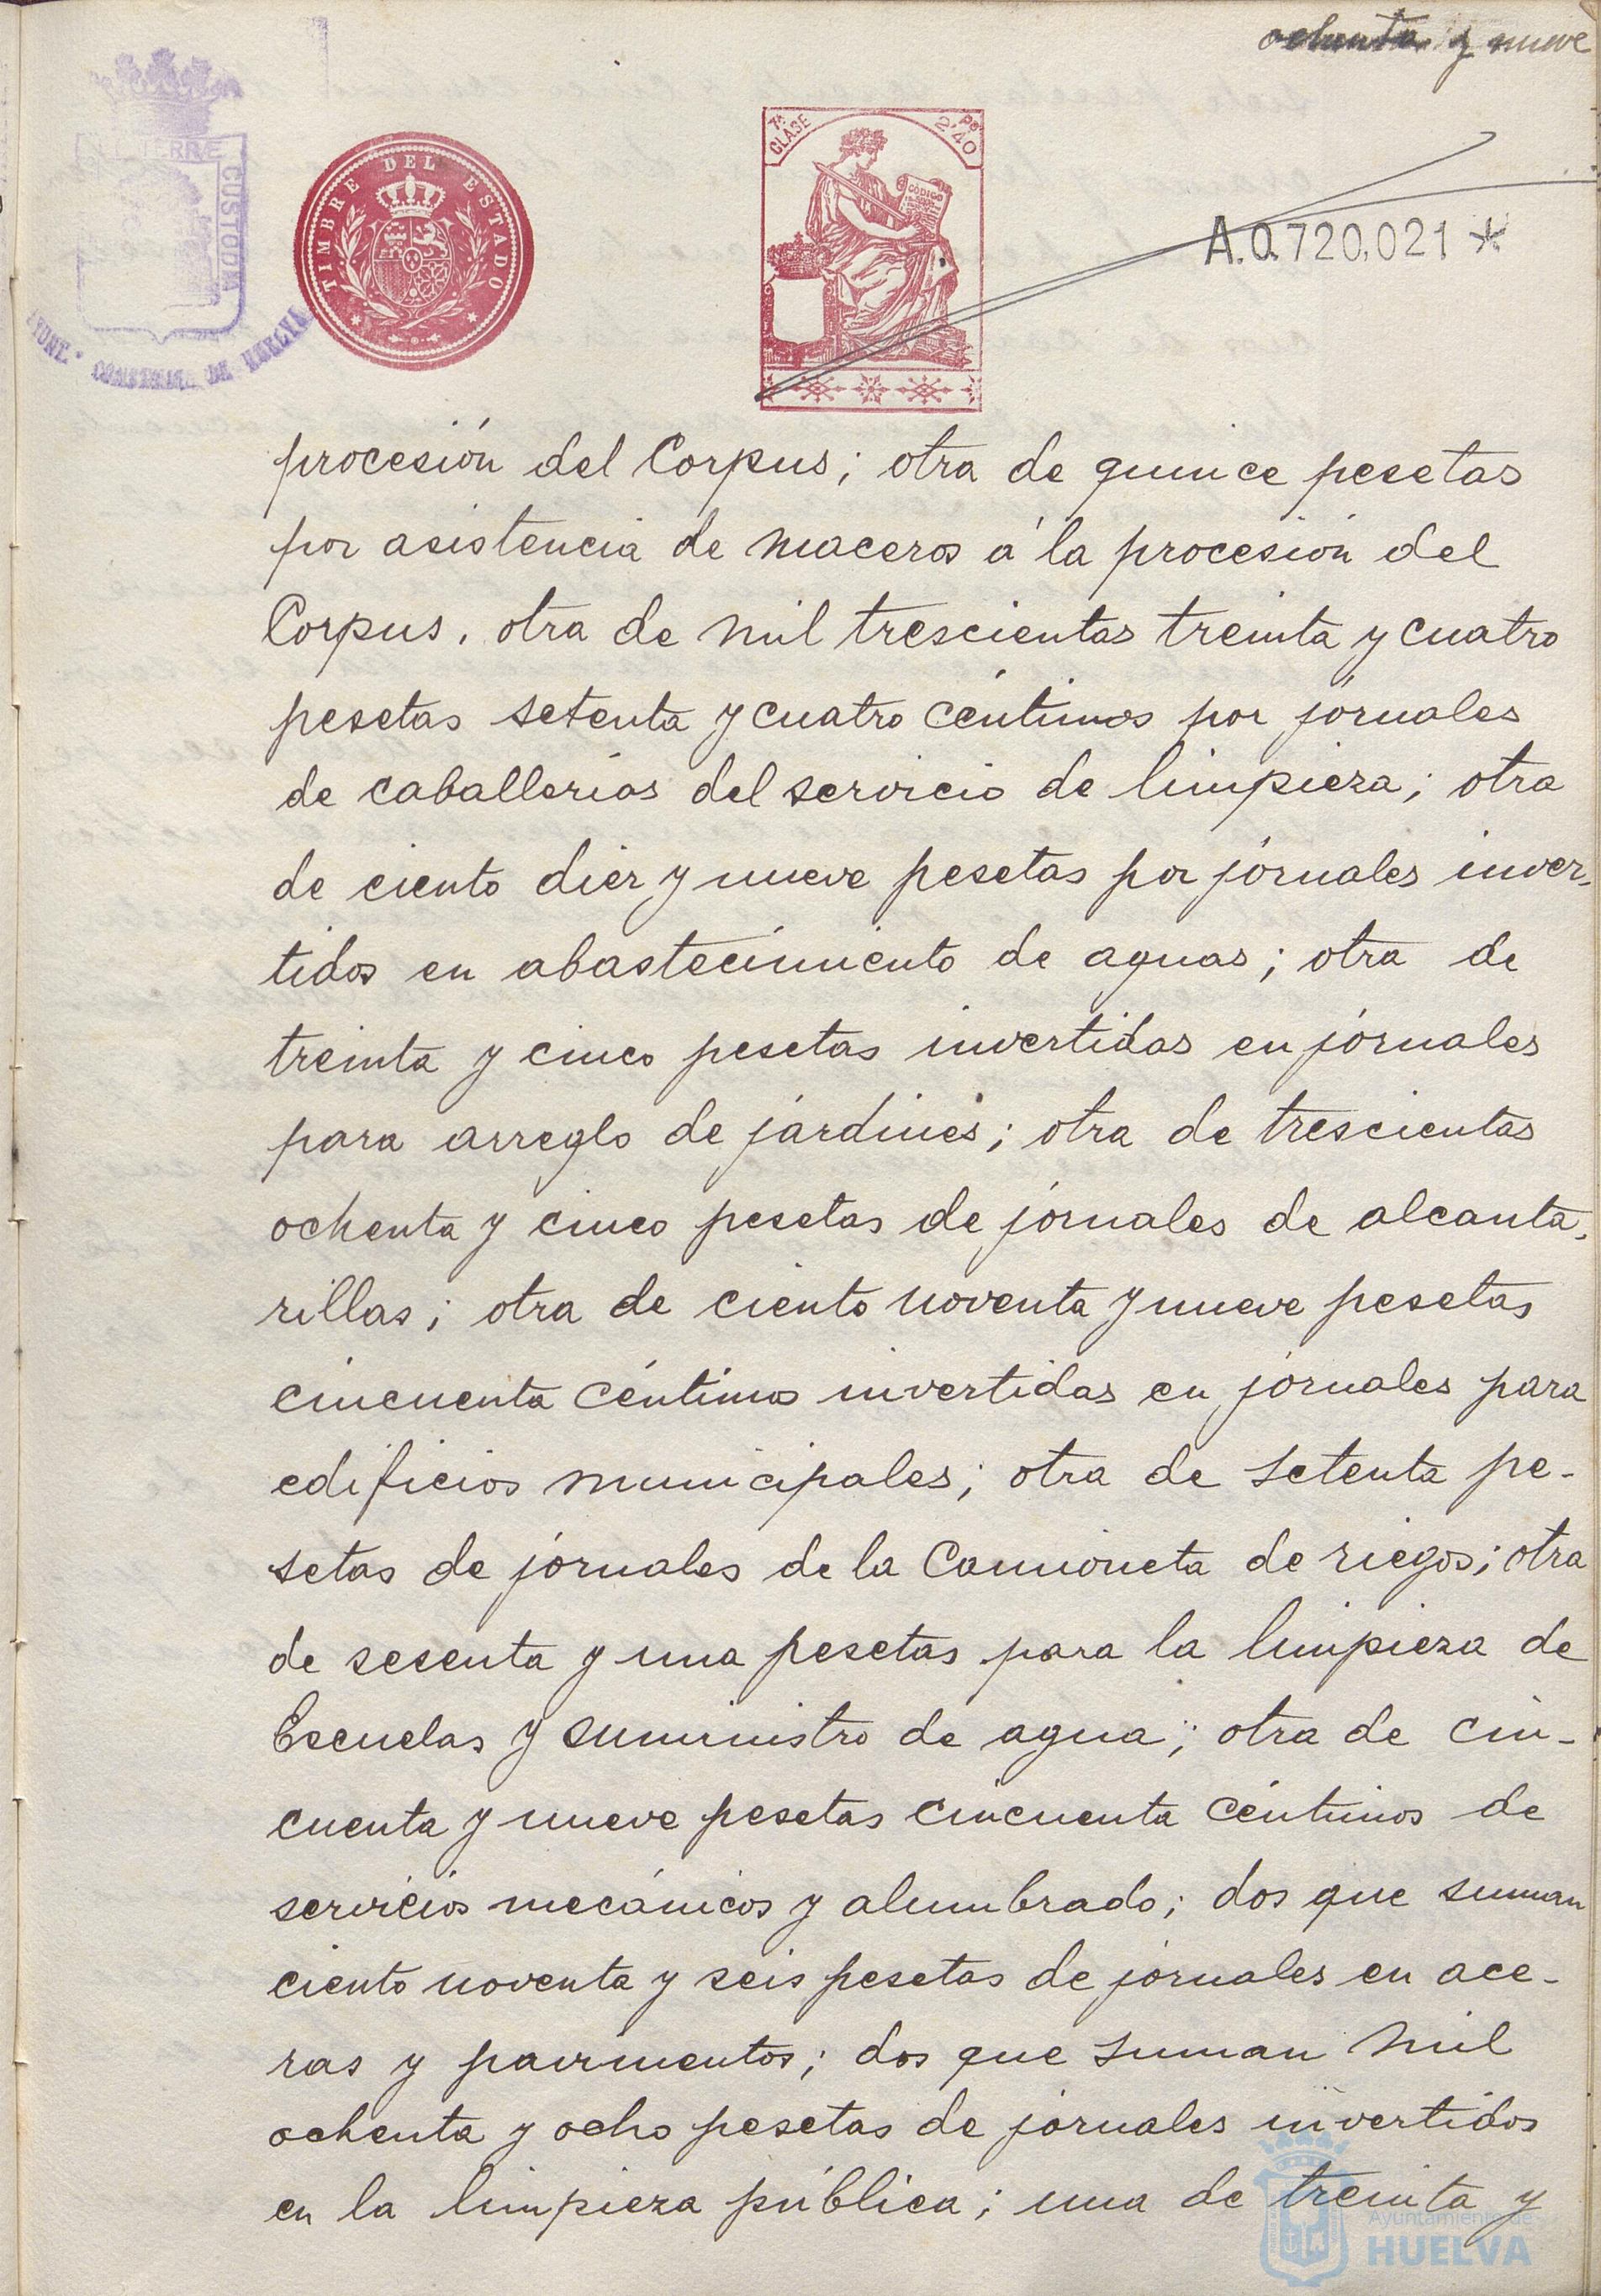 ochenta y nueve
TERRE CUSTODIA
AYUNT. CONSTITUC. DE HUELVA
TIMBRE DEL ESTADO
7ª CLASE
2'40
CÓDIGO
A.0.720,021 *
procesión del Corpus; otra de quince pesetas
por asistencia de maceros á la procesión del
Corpus, otra de mil trescientas treinta y cuatro
pesetas setenta y cuatro céntimos por jornales
de caballerías del servicio de limpieza; otra
de ciento diez y nueve pesetas por jornales inver-
tidos en abastecimiento de aguas; otra de
treinta y cinco pesetas invertidas en jornales
para arreglo de jardines; otra de trescientas
ochenta y cinco pesetas de jornales de alcanta-
rillas; otra de ciento noventa y nueve pesetas
cincuenta céntimos invertidas en jornales para
edificios municipales; otra de setenta pe-
setas de jornales de la Camioneta de riegos; otra
de sesenta y una pesetas para la limpieza de
Escuelas y suministro de agua; otra de cin-
cuenta y nueve pesetas cincuenta céntimos de
servicios mecánicos y alumbrado; dos que suman
ciento noventa y seis pesetas de jornales en ace-
ras y pavimentos; dos que suman mil
ochenta y ocho pesetas de jornales invertidos
en la limpieza pública; una de treinta y
Ayuntamiento de
HUELVA